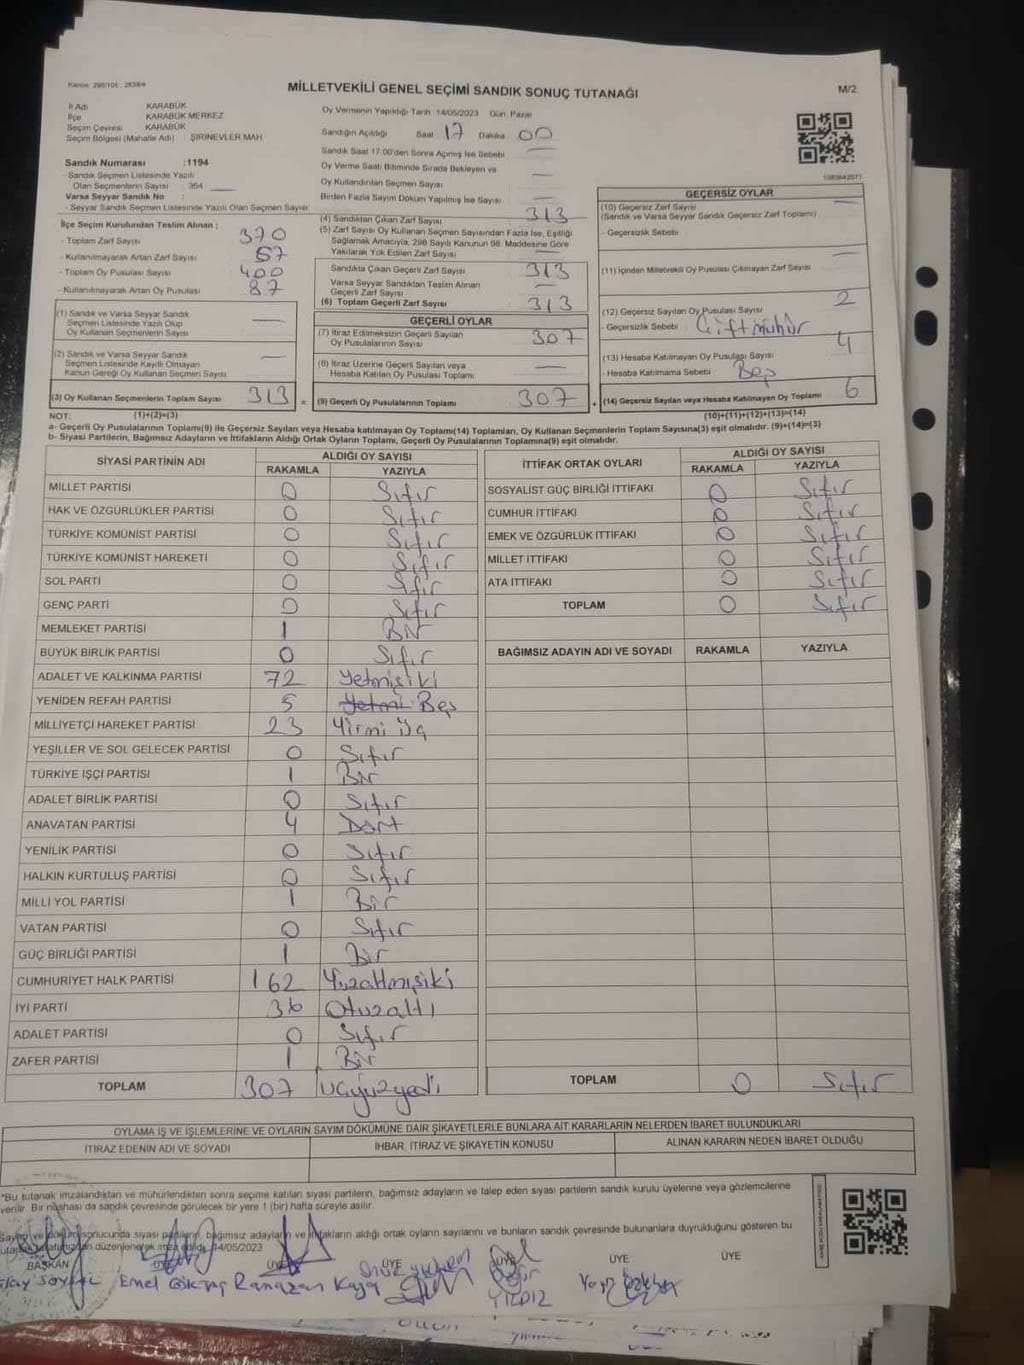 MİLLETVEKİLİ GENEL SEÇİMİ SANDIK SONUÇ TUTANAĞI
M/2
İl Adı KARABÜK
İlçe KARABÜK MERKEZ
Seçim Çevresi KARABÜK
Seçim Bölgesi (Mahalle Adı) ŞİRİNEVLER MAH.
Sandık Numarası : 1194
- Sandık Seçmen Listesinde Yazılı
Olan Seçmenlerin Sayısı : 364
Varsa Seyyar Sandık No :
- Seyyar Sandık Seçmen Listesinde Yazılı Olan Seçmen Sayısı
İlçe Seçim Kurulundan Teslim Alınan ;
- Toplam Zarf Sayısı 370
- Kullanılmayarak Artan Zarf Sayısı 57
- Toplam Oy Pusulası Sayısı 400
- Kullanılmayarak Artan Oy Pusulası 87
(1) Sandık ve Varsa Seyyar Sandık
Seçmen Listesinde Yazılı Olup
Oy Kullanan Seçmenlerin Sayısı
(2) Sandık ve Varsa Seyyar Sandık
Seçmen Listesinde Kayıtlı Olmayan
Kanun Gereği Oy Kullanan Seçmen Sayısı
(3) Oy Kullanan Seçmenlerin Toplam Sayısı 313
Oy Vermenin Yapıldığı Tarih 14/05/2023 Gün Pazar
Sandığın Açıldığı Saat 17 Dakika 00
Sandık Saat 17:00'den Sonra Açılmış İse Sebebi
Oy Verme Saati Bitiminde Sırada Bekleyen ve
Oy Kullandırılan Seçmen Sayısı
Birden Fazla Sayım Döküm Yapılmış İse Sayısı
(4) Sandıktan Çıkan Zarf Sayısı 313
(5) Zarf Sayısı Oy Kullanan Seçmen Sayısından Fazla İse, Eşitliği
Sağlamak Amacıyla, 298 Sayılı Kanunun 98. Maddesine Göre
Yakılarak Yok Edilen Zarf Sayısı
Sandıkta Çıkan Geçerli Zarf Sayısı 313
Varsa Seyyar Sandıktan Teslim Alınan
Geçerli Zarf Sayısı
(6) Toplam Geçerli Zarf Sayısı 313
GEÇERLİ OYLAR
(7) İtiraz Edilmeksizin Geçerli Sayılan
Oy Pusulalarının Sayısı 307
(8) İtiraz Üzerine Geçerli Sayılan veya
Hesaba Katılan Oy Pusulası Toplamı
= (9) Geçerli Oy Pusulalarının Toplamı 307
GEÇERSİZ OYLAR
(10) Geçersiz Zarf Sayısı
(Sandık ve Varsa Seyyar Sandık Geçersiz Zarf Toplamı)
- Geçersizlik Sebebi
(11) İçinden Milletvekili Oy Pusulası Çıkmayan Zarf Sayısı
(12) Geçersiz Sayılan Oy Pusulası Sayısı 2
- Geçersizlik Sebebi Çift mühür
(13) Hesaba Katılmayan Oy Pusulası Sayısı 4
- Hesaba Katılmama Sebebi Boş
+ (14) Geçersiz Sayılan veya Hesaba Katılmayan Oy Toplamı 6
NOT: (1)+(2)=(3) (10)+(11)+(12)+(13)=(14)
a- Geçerli Oy Pusulalarının Toplamı(9) ile Geçersiz Sayılan veya Hesaba katılmayan Oy Toplamı(14) Toplamları, Oy Kullanan Seçmenlerin Toplam Sayısına(3) eşit olmalıdır. (9)+(14)=(3)
b- Siyasi Partilerin, Bağımsız Adayların ve İttifakların Aldığı Ortak Oyların Toplamı, Geçerli Oy Pusulalarının Toplamına(9) eşit olmalıdır.
SİYASİ PARTİNİN ADI ALDIĞI OY SAYISI
RAKAMLA YAZIYLA
MİLLET PARTİSİ 0 Sıfır
HAK VE ÖZGÜRLÜKLER PARTİSİ 0 Sıfır
TÜRKİYE KOMÜNİST PARTİSİ 0 Sıfır
TÜRKİYE KOMÜNİST HAREKETİ 0 Sıfır
SOL PARTİ 0 Sıfır
GENÇ PARTİ 0 Sıfır
MEMLEKET PARTİSİ 1 Bir
BÜYÜK BİRLİK PARTİSİ 0 Sıfır
ADALET VE KALKINMA PARTİSİ 72 Yetmişiki
YENİDEN REFAH PARTİSİ 5 Beş
MİLLİYETÇİ HAREKET PARTİSİ 23 Yirmi üç
YEŞİLLER VE SOL GELECEK PARTİSİ 0 Sıfır
TÜRKİYE İŞÇİ PARTİSİ 1 Bir
ADALET BİRLİK PARTİSİ 0 Sıfır
ANAVATAN PARTİSİ 4 Dört
YENİLİK PARTİSİ 0 Sıfır
HALKIN KURTULUŞ PARTİSİ 0 Sıfır
MİLLİ YOL PARTİSİ 1 Bir
VATAN PARTİSİ 0 Sıfır
GÜÇ BİRLİĞİ PARTİSİ 1 Bir
CUMHURİYET HALK PARTİSİ 162 Yüzaltmışiki
İYİ PARTİ 36 Otuzaltı
ADALET PARTİSİ 0 Sıfır
ZAFER PARTİSİ 1 Bir
TOPLAM 307 Üçyüzyedi
İTTİFAK ORTAK OYLARI ALDIĞI OY SAYISI
RAKAMLA YAZIYLA
SOSYALİST GÜÇ BİRLİĞİ İTTİFAKI 0 Sıfır
CUMHUR İTTİFAKI 0 Sıfır
EMEK VE ÖZGÜRLÜK İTTİFAKI 0 Sıfır
MİLLET İTTİFAKI 0 Sıfır
ATA İTTİFAKI 0 Sıfır
TOPLAM 0 Sıfır
BAĞIMSIZ ADAYIN ADI VE SOYADI RAKAMLA YAZIYLA
TOPLAM 0 Sıfır
OYLAMA İŞ VE İŞLEMLERİNE VE OYLARIN SAYIM DÖKÜMÜNE DAİR ŞİKAYETLERLE BUNLARA AİT KARARLARIN NELERDEN İBARET BULUNDUKLARI
İTİRAZ EDENİN ADI VE SOYADI İHBAR, İTİRAZ VE ŞİKAYETİN KONUSU ALINAN KARARIN NEDEN İBARET OLDUĞU
*Bu tutanak imzalandıktan ve mühürlendikten sonra seçime katılan siyasi partilerin, bağımsız adayların ve talep eden siyasi partilerin sandık kurulu üyelerine veya gözlemcilerine
verilir. Bir nüshası da sandık çevresinde görülecek bir yere 1 (bir) hafta süreyle asılır.
sonucunda siyasi partilerin, bağımsız adayların ve ittifakların aldığı ortak oyların sayılarını ve bunların sandık çevresinde bulunanlara duyrulduğunu gösteren bu
düzenlenerek imza edildi. 14/05/2023
BAŞKAN ÜYE ÜYE ÜYE ÜYE ÜYE
Emel Göktaş Ramazan Kaya
YILDIZ